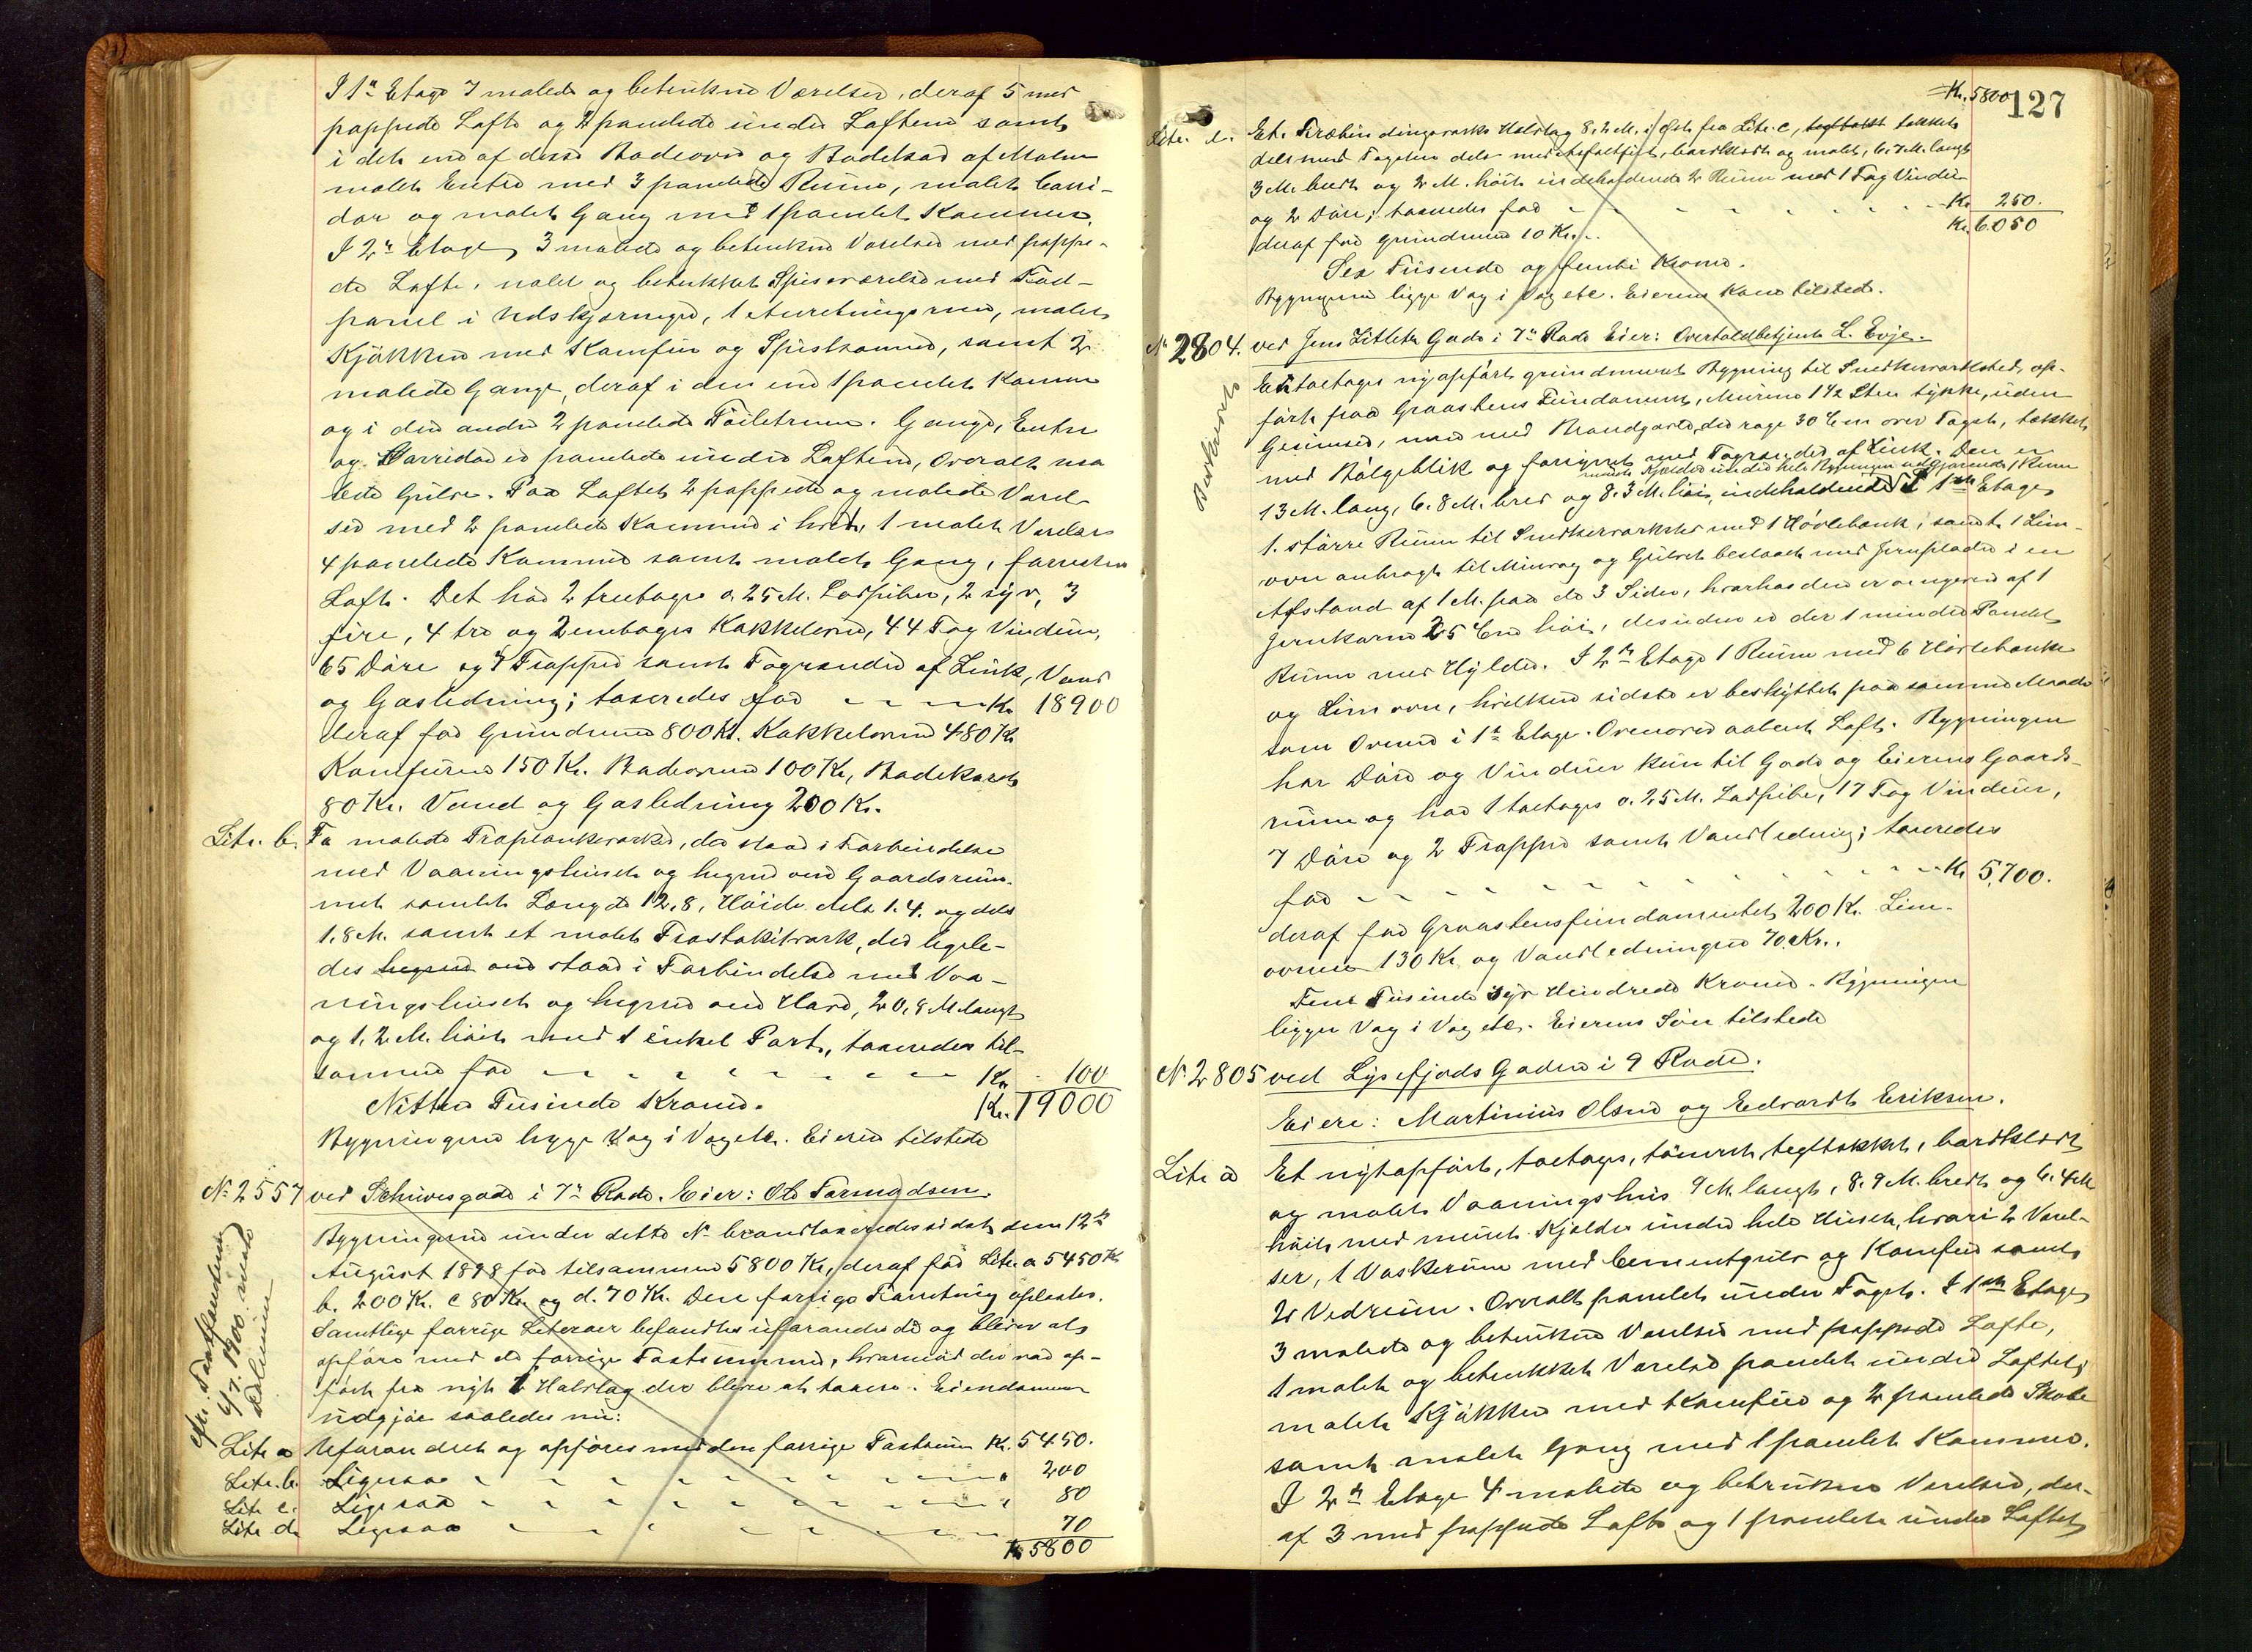 I 1ste Etage 7 malede og betrukne Værelser, deraf 5 med
pappede Lofte og 2 panelede under Loftene samt
i det ene af disse Badeovn og Badekar af Malm
malet Entre med 3 panelede Rum, malet Corri-
dor og malet Gang med 1 panelet Kammer.
I 2den Etage 3 malede og betrukne Værelser med pappe-
de Lofte, malet og betrukket Spiseværelse med Fod-
panel i Udskjæringer, 1 Anretningsrum, malet
Kjøkken med Komfur og Spiskammer, samt 2
malede Gange, deraf i den ene 1 panelet Kammer
og i den anden 2 panelede Toiletrum. Gange, Entre
og Corridor er panelede under Loftene, Overalt ma
lede Gulve. Paa Loftet 2 pappede og malede Værel-
ser med 2 panelede Kammer i hvert, 1 malet Værelse
4 panelede Kammer samt malet Gang, forresten
Loft. Det har 2 treetages o. 25 M. Lodpiber, 2 syv, 3
fire, 4 tre og 2 enetages Kakkelovne, 44 Fag Vinduer,
65 Døre og 4 Trapper samt Tagrender af Zink, Vand
og Gasledning; taxeredes for - - - Kr. 18900
deraf for Grundmur 800 Kr. Kakkelovne 480 Kr.
Komfuren 150 Kr. Badeovnen 100 Kr, Badekaret
80 Kr. Vand og Gasledning 200 Kr.
Litr. b. To malede Træplankeværker, der staar i Forbindelse
med Vaaningshuset og hegner om Gaardsrum-
met samlet Længde 12,8, Høide dels 1.4. og dels
1.8 M. samt et malet Træstakitværk, der ligele-
des hegner om staar i Forbindelse med Vaa-
ningshuset og hegner om Have, 20,8 M langt
og 1,2 M. høit med 1 enkel Port, taxeredes til-
sammen for - - - - - - - Kr. 100
Nitten Tusinde Kroner. Kr. 19000
Bygningerne ligge Vag i Vag etc. Eieren tilstede
No 2557 ved Schivesgade i 7de Rode. Eier: Ole Tormodsen.
Bygningerne under dette No brandtaxeredes sidst den 12te
August 1898 for tilsammen 5800 Kr, deraf for Litr. a 5450 Kr
b. 200 Kr. c 80 Kr. og d. 70 Kr. Den forrige Taxering oplæstes.
Samtlige forrige Literaer befandtes uforandrede og bliver at
opføre med de forrige Taxtsummer, hvorimod der var op-
ført fra nyt 1 Halvtag der bliver at taxere. Eiendommen
udgjør saaledes nu:
cfr. Taxtforretning
6/7. 1900. med
Litr a Uforandret og opføres med den forrige Taxtsum Kr. 5450.
Litr. b. Ligesaa - - - - - - - - - 200
Litr c. Ligesaa - - - - - - - - - 80
Litr d. Ligesaa - - - - - - - - - 70
Kr 5800
Kr. 5800 127
Litr. e. Et Træbindingsværks Halvtag 8,2 M. i Øst fra Litr. c, tegltækt tækket
dels med Tagsten dels med Asfaltfilt, bordklædt og malet, 6,7 M. langt
3 M. bredt og 2 M. høit indeholdende 2 Rum med 1 Fag Vinduer
og 2 Døre; taxeredes for - - - - - - - Kr 250.
deraf for Grundmur 10 Kr. Kr. 6050
Sex Tusinde og femti Kroner.
Bygningerne ligge Vag i Vag etc. Eierens Kone tilstede.
No 2804. ved Jens Zetlitz Gade i 7de Rode Eier: Overtoldbetjent L. Evje.
En toetages nyopført grundmuret Bygning til Snedkerværksted, op-
ført paa Graastens Fundament, Murene 1 1/2 Sten tykke, uden
Gesimser, men med Brandgavle, der rage 30 Cm over Taget, tækket
med Bølgeblik og forsynet med Tagrender af Zink. Den er
muret Kjælder under hele Bygningen udgjørende 1 Rum
13 M. lang, 6.8 M. bred og 8.3 M. høi, indeholdende I 1ste Etage
1. større Rum til Snedkerværksted med 1 Høvlebænk, samt 1 Lim-
ovn anbragt til Murvæg og Gulvet beslaaet med Jernplader i en
Afstand af 1 M. paa de 3 Sider, hvorhos den er omgiven af 1
Jernkarm 25 Cm høi, desuden er der 1 mindre Panelet
Rum med Hylder. I 2den Etage 1 Rum med 6 Høvlebænke
og Limovn, hvilken sidste er beskyttet paa samme Maade
som Ovnen i 1ste Etage. Ovenover aabent Loft. Bygningen
har Døre og Vinduer kun til Gade og Eierens Gaards-
rum og har 1 toetages o. 25 M. Lodpibe, 17 Fag Vinduer,
7 Døre og 2 Trapper samt Vandledning; taxeredes
for - - - - - - - - - - Kr 5,700.
deraf for Graastensfundamentet 200 Kr. Lim-
ovnene 130 Kr og Vandledningen 70 Kr.
Fem Tusinde syv Hundrede Kroner. Bygningen
ligger Vag i Vag etc. Eierens Søn tilstede
No 2805 ved Lysefjords Gaden i 9 Rode.
Eiere: Martinius Olsen og Edvardt Eriksen.
Litr a Et nytopført, toetages, tømret, tegltækket, bordklædt
og malet Vaaningshus 9 M. langt, 8.9 M. bredt og 6.4 M
høit med muret Kjælder under hele Huset, hvori 2 Værel-
ser, 1 Vaskerum med Cementgulv og Komfur samt
2 Vedrum. Overalt panelet under Taget. I 1ste Etage
3 malede og betrukne Værelser med pappede Lofte,
1 malet og betrukket Værelse panelet under Loftet,
malet Kjøkken med Komfur og 2 panelede Skabe
samt malet Gang med 1 panelet Kammer.
I 2den Etage 4 malede og betrukne Værelser, der-
af 3 med pappede Lofte og 1 panelet under Loftet